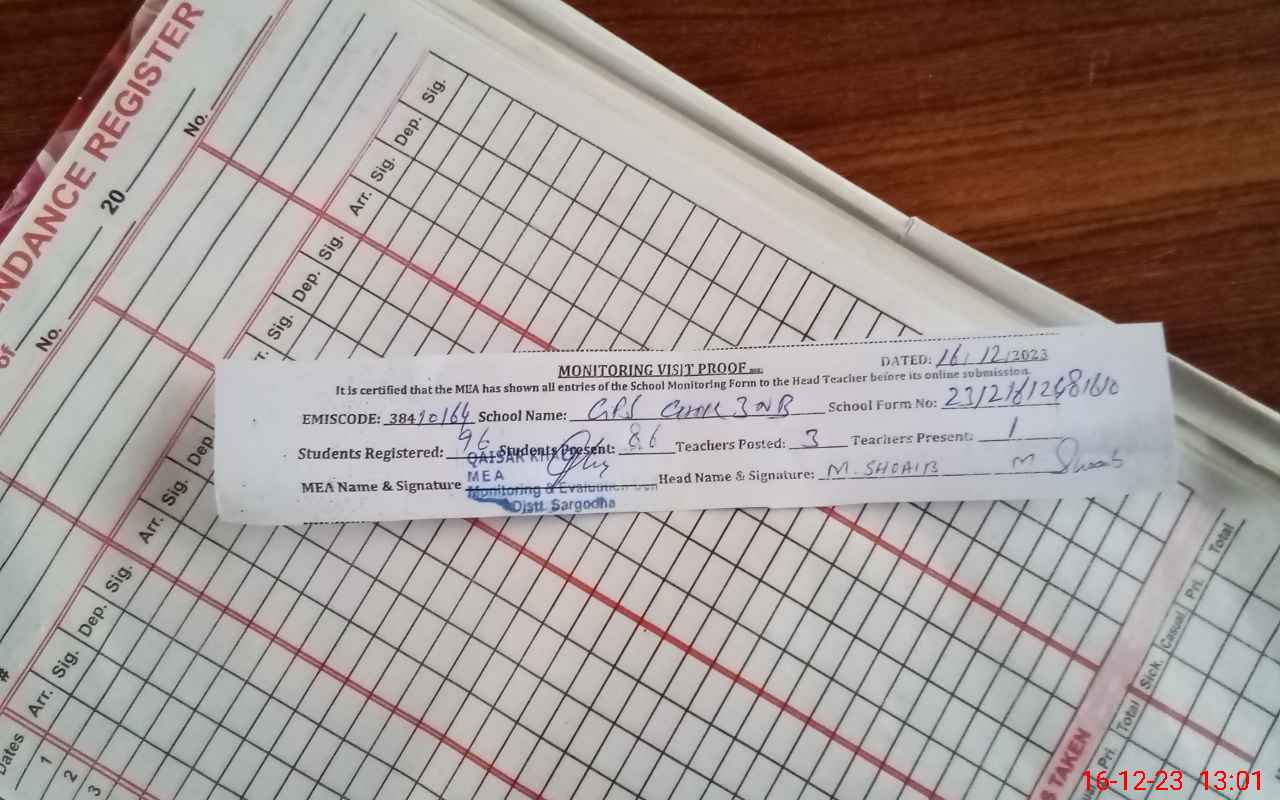 NDANCE REGISTER
of
20
No.
No.
Sig.
Dep.
Sig.
Arr.
Sig.
Dep.
Sig.
MONITORING VISIT PROOF
DATED: 16/12/2023
It is certified that the MEA has shown all entries of the School Monitoring Form to the Head Teacher before its online submission.
EMISCODE: 38410164 School Name: GPS CHAK 3 NB School Form No:
Students Registered: 96 Students Present: 86 Teachers Posted: 3 Teachers Present: 1
MEA Name & Signature Head Name & Signature: M. SHOAIB M. Shoaib
QAISAR
MEA
Monitoring & Evaluation Cell
Distt. Sargodha
Dep.
Sig.
Arr.
Sig.
Dep.
Sig.
Arr.
#
Dates
1
2
3
Total
Pri.
Casual
Sick.
Total
Pri.
S TAKEN
16-12-23 13:01